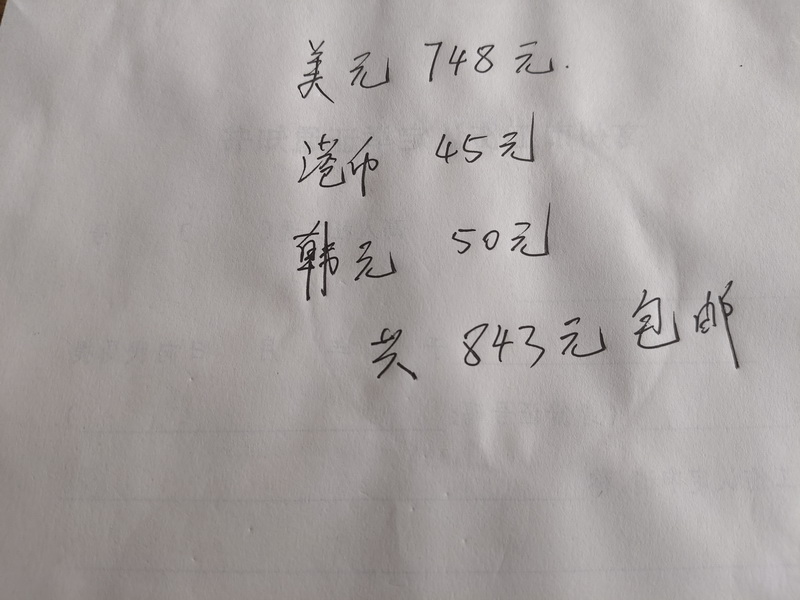 美元 748元.
港币 45元
韩元 50元
共 843元包邮